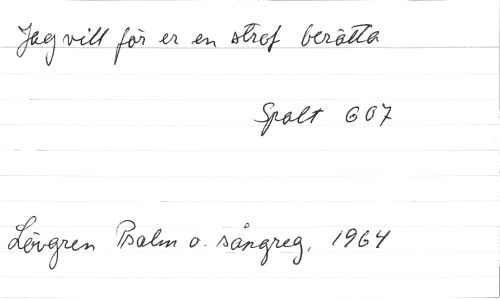 Jag vill för er en strof berätta
Spalt 607
Lövgren Psalm o. sångreg. 1964